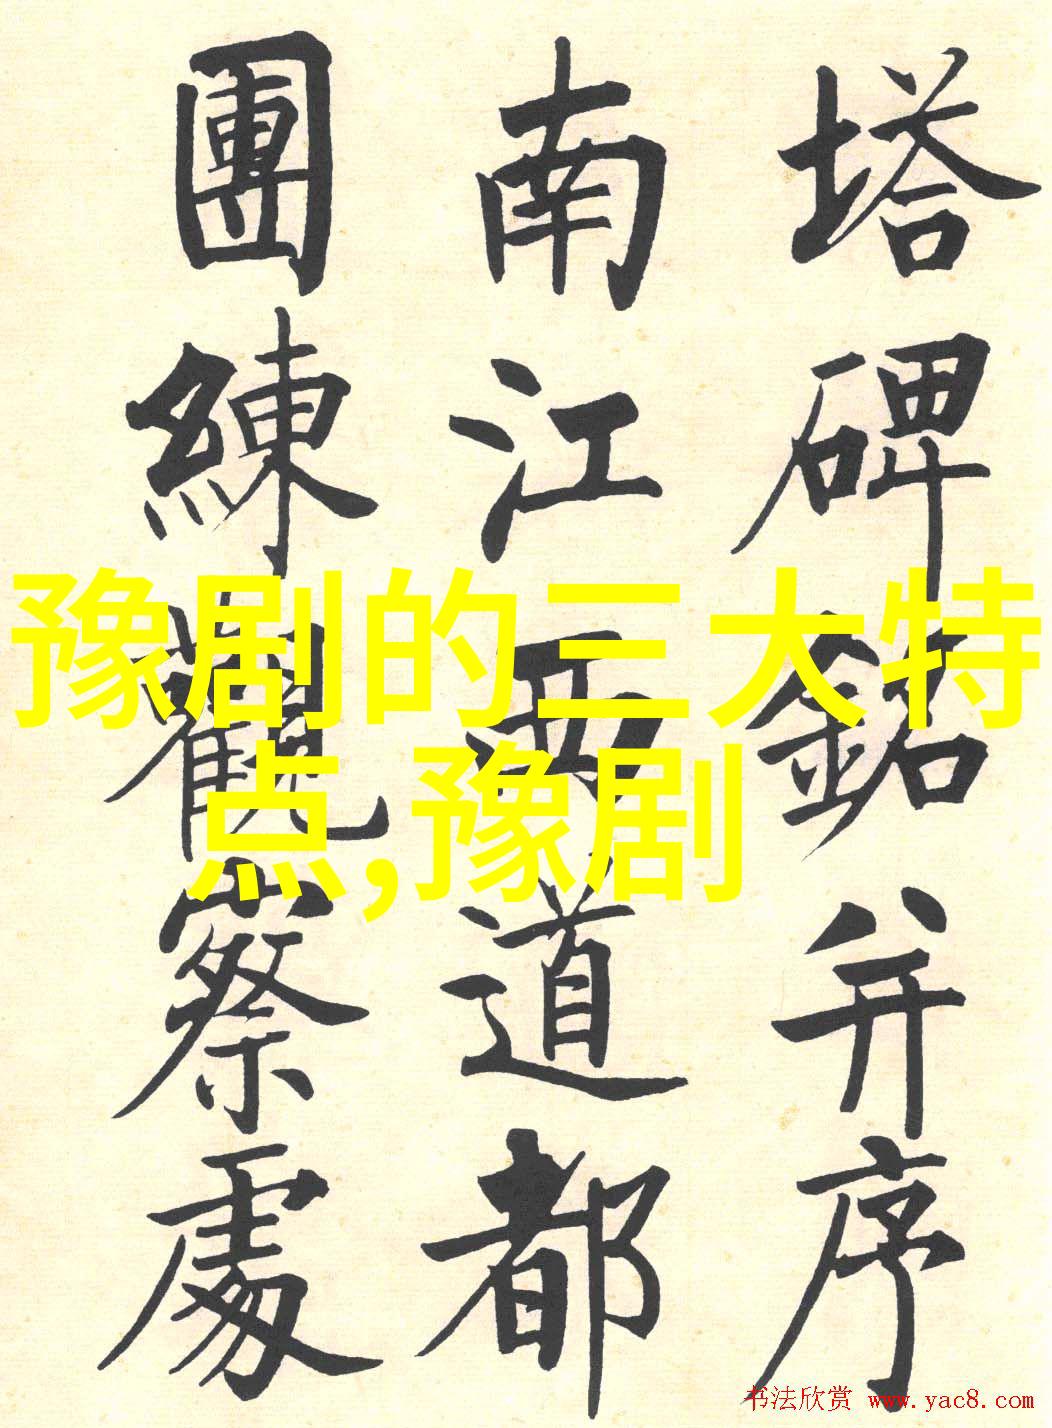 塔碑銘并序
南江西道都
團練觀察處
豫剧的三大特
点,豫剧
书法欣赏 www.yac8.com